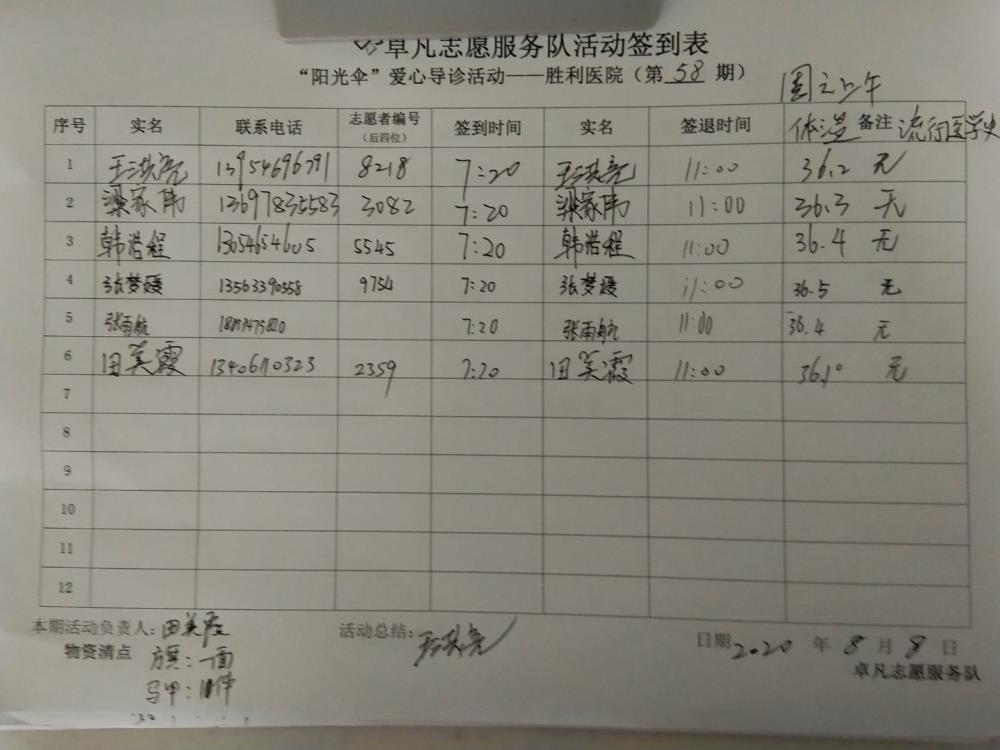 卓凡志愿服务队活动签到表
“阳光伞”爱心导诊活动——胜利医院（第 58 期）
周六上午
序号 实名 联系电话 志愿者编号（后四位） 签到时间 实名 签退时间 体温 备注 流行医学史
1 王洪亮 13954696791 8218 7:20 王洪亮 11:00 36.2 无
2 梁家伟 13697835583 3082 7:20 梁家伟 11:00 36.3 无
3 韩浩程 13654654605 5545 7:20 韩浩程 11:00 36.4 无
4 张梦媛 13563390558 9754 7:20 张梦媛 11:00 36.5 无
5 张雨航 7:20 张雨航 11:00 36.4 无
6 田美霞 13406110323 2359 7:20 田美霞 11:00 36.1° 无
7
8
9
10
11
12
本期活动负责人：田美霞 活动总结：王洪亮 日期 2020 年 8 月 8 日
物资清点 方旗：一面 卓凡志愿服务队
马甲：10件